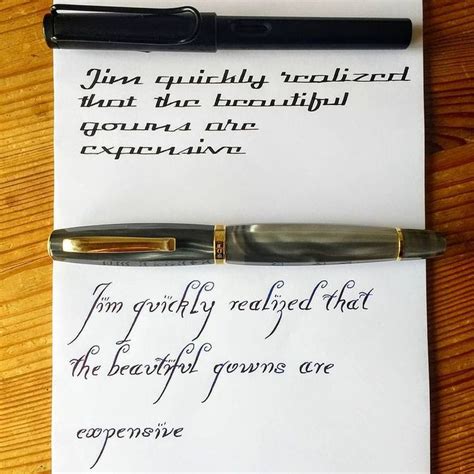 Jim quickly realized
that the beautiful
gowns are
expensive
Jim quickly realized that
the beautiful gowns are
expensive